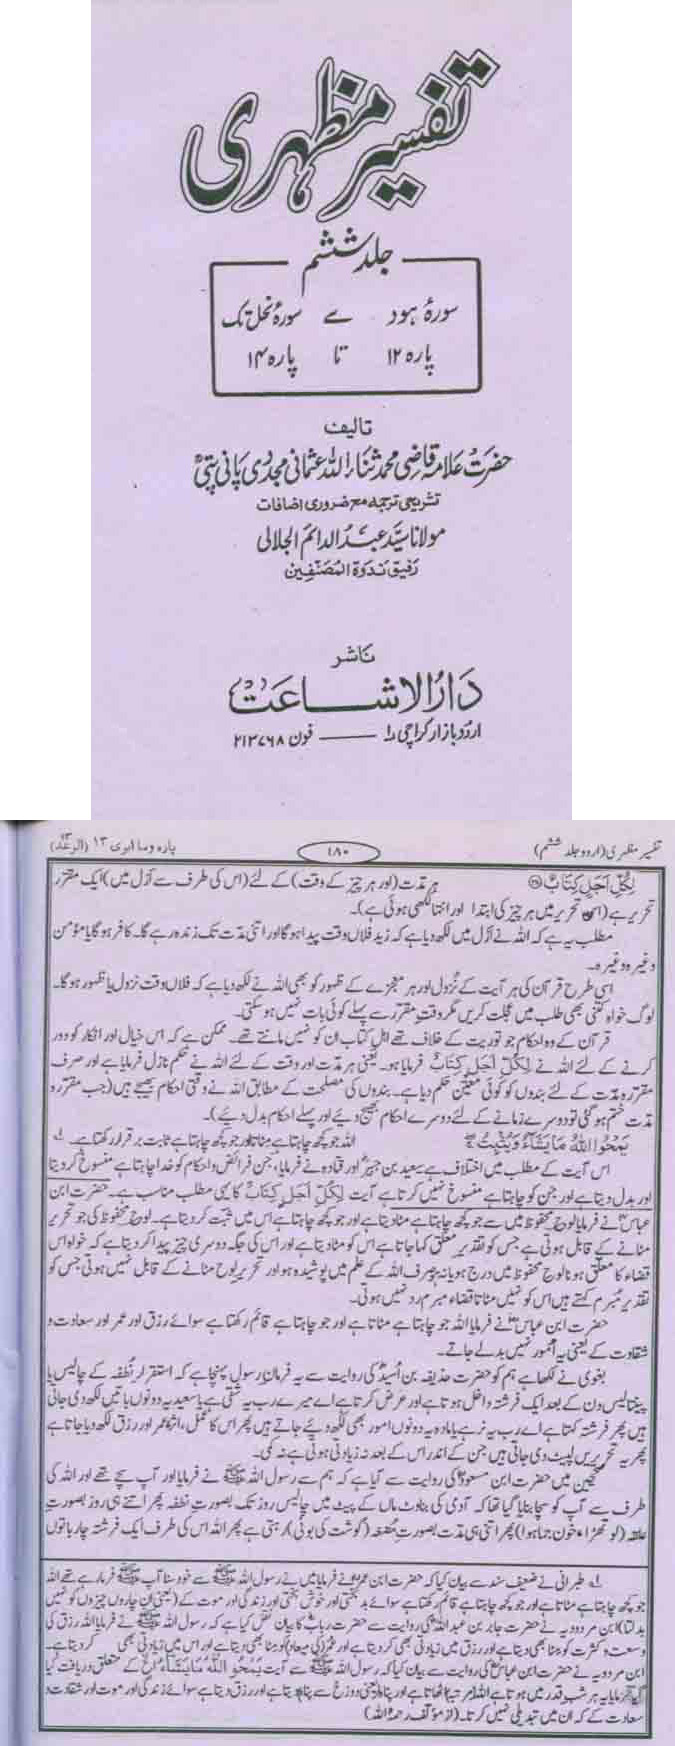 تفسیر مظہری
جلد ششم
سورۂ ہود سے سورۂ نحل تک
پارہ ۱۲ تا پارہ ۱۴
تالیف
حضرت علامہ قاضی محمد ثناء اللہ عثمانی مجددی پانی پتیؒ
تشریحی ترجمہ مع ضروری اضافات
مولانا سید عبد الدائم الجلالی
رفیق ندوۃ المصنفین
ناشر
دار الاشاعت
اردو بازار کراچی ۱ — فون ۲۱۳۷۶۸
تفسیر مظہری (اردو جلد ششم) ۱۸۰ پارہ وما ابری ۱۳ (الرعد) ۱۳
لِكُلِّ أَجَلٍ كِتَابٌ ہر مدت (اور ہر چیز کے وقت) کے لئے (اس کی طرف سے ازل میں) ایک مقرر
تحریر ہے (اس تحریر میں ہر چیز کی ابتدا اور انتہا لکھی ہوئی ہے)۔
مطلب یہ ہے کہ اللہ نے ازل میں لکھ دیا ہے کہ زید فلاں وقت پیدا ہوگا اور اتنی مدت تک زندہ رہے گا۔ کافر ہوگا یا مؤمن
وغیرہ وغیرہ۔
اسی طرح قرآن کی ہر آیت کے نزول اور ہر معجزے کے ظہور کو بھی اللہ نے لکھ دیا ہے کہ فلاں وقت نزول یا ظہور ہوگا۔
لوگ خواہ کتنی بھی طلب میں عجلت کریں مگر وقت مقرر سے پہلے کوئی بات نہیں ہو سکتی۔
قرآن کے وہ احکام جو توریت کے خلاف تھے اہل کتاب ان کو نہیں مانتے تھے۔ ممکن ہے کہ اس خیال اور انکار کو دور
کرنے کے لئے اللہ نے لِكُلِّ أَجَلٍ كِتَابٌ فرمایا ہو۔ یعنی ہر مدت اور وقت کے لئے اللہ نے حکم نازل فرمایا ہے اور صرف
مقررہ مدت کے لئے بندوں کو کوئی معین حکم دیا ہے۔ بندوں کی مصلحت کے مطابق اللہ نے وقتی احکام بھیجے ہیں (جب مقررہ
مدت ختم ہو گئی تو دوسرے زمانے کے لئے دوسرے احکام بھیج دیے اور پہلے احکام بدل دیئے)۔
يَمْحُوا اللّٰهُ مَا يَشَآءُ وَيُثْبِتُ اللہ جو کچھ چاہتا ہے مٹاتا اور جو کچھ چاہتا ہے ثابت برقرار رکھتا ہے۔
اس آیت کے مطلب میں اختلاف ہے سعید بن جبیر اور قتادہ نے فرمایا، جن فرائض و احکام کو خدا چاہتا ہے منسوخ کر دیتا
اور بدل دیتا ہے اور جن کو چاہتا ہے منسوخ نہیں کرتا ہے آیت لِكُلِّ أَجَلٍ كِتَابٌ کا یہی مطلب مناسب ہے۔ حضرت ابن
عباس نے فرمایا لوح محفوظ میں سے جو کچھ چاہتا ہے مٹا دیتا ہے اور جو کچھ چاہتا ہے اس میں ثبت کر دیتا ہے۔ لوح محفوظ کی جو تحریر
مٹانے کے قابل ہوتی ہے جس کو تقدیر معلق کہا جاتا ہے اس کو مٹا دیتا ہے اور اس کی جگہ دوسری چیز پیدا کر دیتا ہے کہ خواہ اس
قضاء کا معلق ہونا لوح محفوظ میں درج ہو یا نہ ہو صرف اللہ کے علم میں پوشیدہ ہو اور تحریر لوح مٹانے کے قابل نہیں ہوتی جس کو
تقدیر مبرم کہتے ہیں اس کو نہیں مٹاتا قضاء مبرم رد نہیں ہوتی۔
حضرت ابن عباس نے فرمایا اللہ جو چاہتا ہے مٹاتا ہے اور جو چاہتا ہے قائم رکھتا ہے سوائے رزق اور عمر اور سعادت و
شقاوت کے یعنی یہ امور نہیں بدلے جاتے۔
بغوی نے لکھا ہے ہم کو حضرت حذیفہ بن اسید کی روایت سے یہ فرمان رسول پہنچا ہے کہ استقرار نطفہ کے چالیس یا
پینتالیس دن کے بعد ایک فرشتہ داخل ہوتا ہے اور عرض کرتا ہے اے میرے رب یہ شقی ہے یا سعید یہ دونوں باتیں لکھ دی جاتی
ہیں پھر فرشتہ کہتا ہے اے رب یہ نر ہے یا مادہ یہ دونوں امور بھی لکھ دیئے جاتے ہیں پھر اس کا عمل، اثر، عمر اور رزق لکھ دیا جاتا ہے
پھر یہ تحریریں لپیٹ دی جاتی ہیں جن کے اندر اس کے بعد نہ زیادتی ہوتی ہے نہ کمی۔
صحیحین میں حضرت ابن مسعود کی روایت سے آیا ہے کہ ہم سے رسول اللہ ﷺ نے فرمایا اور آپ سچے تھے اور اللہ کی
طرف سے آپ کو سچا بنایا گیا تھا کہ آدمی کی بناوٹ ماں کے پیٹ میں چالیس روز تک بصورت نطفہ پھر اتنے ہی روز بصورت
علقہ (لوتھڑا، خون جما ہوا) پھر اتنی ہی مدت بصورت مضغہ (گوشت کی بوٹی) رہتی ہے پھر اللہ اس کی طرف ایک فرشتہ چار باتوں
طبرانی نے ضعیف سند سے بیان کیا کہ حضرت ابن عمر نے فرمایا میں نے رسول اللہ ﷺ سے خود سنا آپ ﷺ فرما رہے تھے اللہ
جو کچھ چاہتا ہے مٹاتا ہے اور جو کچھ چاہتا ہے قائم رکھتا ہے سوائے بدبختی اور خوش بختی اور زندگی اور موت کے (یعنی ان چاروں چیزوں کو نہیں
بدلتا) ابن مردویہ نے حضرت جابر بن عبد اللہ کی روایت سے حضرت کا بیان نقل کیا ہے کہ رسول اللہ ﷺ نے فرمایا اللہ رزق کی
وسعت و کثرت کو مٹا بھی دیتا ہے اور رزق میں زیادتی بھی کر دیتا ہے اور عمر (کی میعاد) کو مٹا بھی دیتا ہے اور اس میں زیادتی بھی کر دیتا ہے۔
ابن مردویہ نے حضرت ابن عباس کی روایت سے بیان کیا کہ رسول اللہ ﷺ سے آیت يَمْحُوا اللّٰهُ مَا يَشَآءُ الخ کے متعلق دریافت کیا
گیا فرمایا یہ ہر شب قدر میں ہوتا ہے اللہ (مرتبہ) اٹھاتا ہے اور رزق دیتا ہے سوائے زندگی اور موت اور شقاوت و
سعادت کے کہ ان میں تبدیلی نہیں کرتا۔ (از مؤلف رحمۃ اللہ)